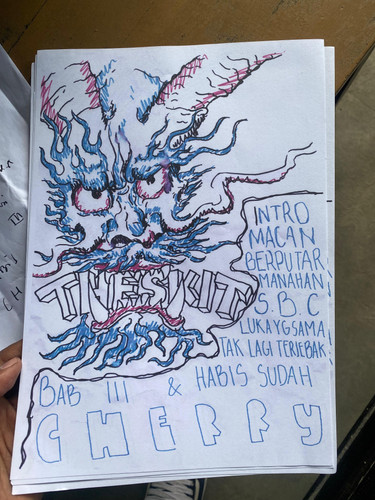 TINESKIT
INTRO
MACAN
BERPUTAR
MANAHAN
S.B.C
LUKA YG SAMA
TAK LAGI TERJEBAK
BAB III & HABIS SUDAH
CHERRY